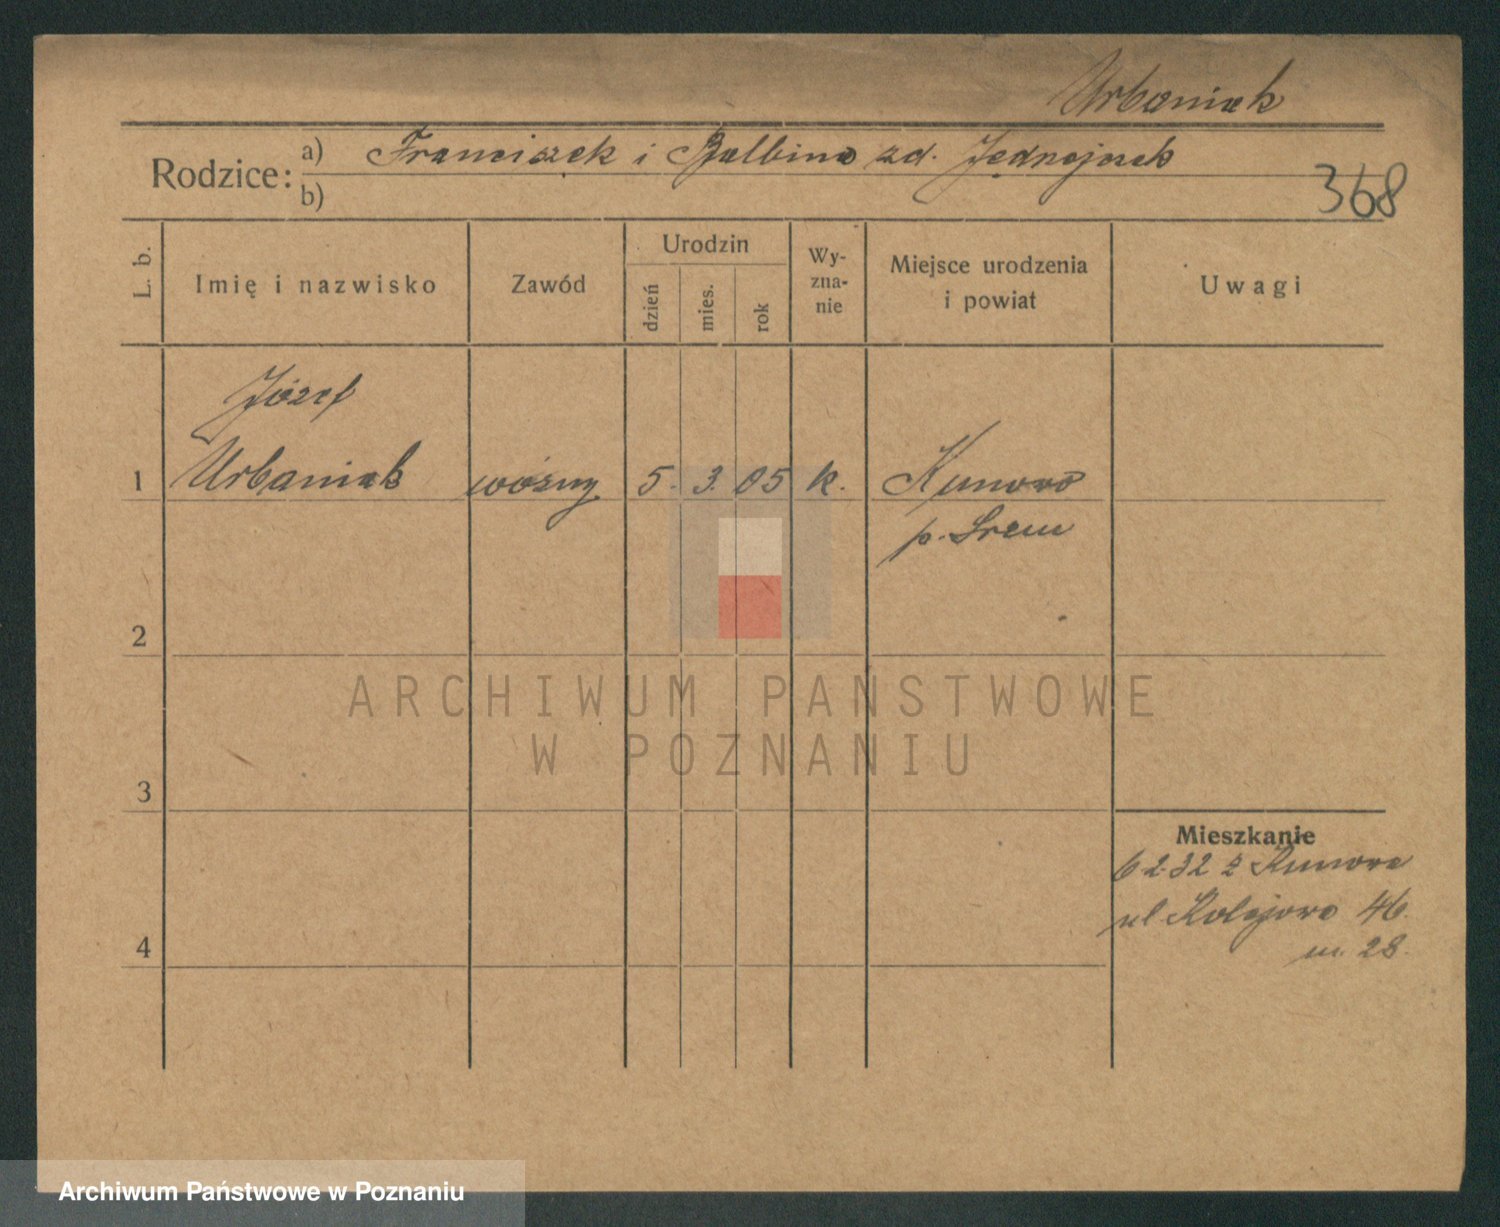 Urbaniak
Rodzice:
a) Franciszek i Balbina zd. Jednejezek
b)
368
L. b.
Imię i nazwisko
Zawód
Urodzin
dzień
mies.
rok
Wy-
zna-
nie
Miejsce urodzenia
i powiat
Uwagi
Józef
1 Urbaniak woźny 5. 3. 05 k. Kunowo
p. Śrem
2
3
4
Mieszkanie
6 2 32 z Kunowa
ul. Kolejowa 46.
m. 28.
ARCHIWUM PAŃSTWOWE
W POZNANIU
Archiwum Państwowe w Poznaniu